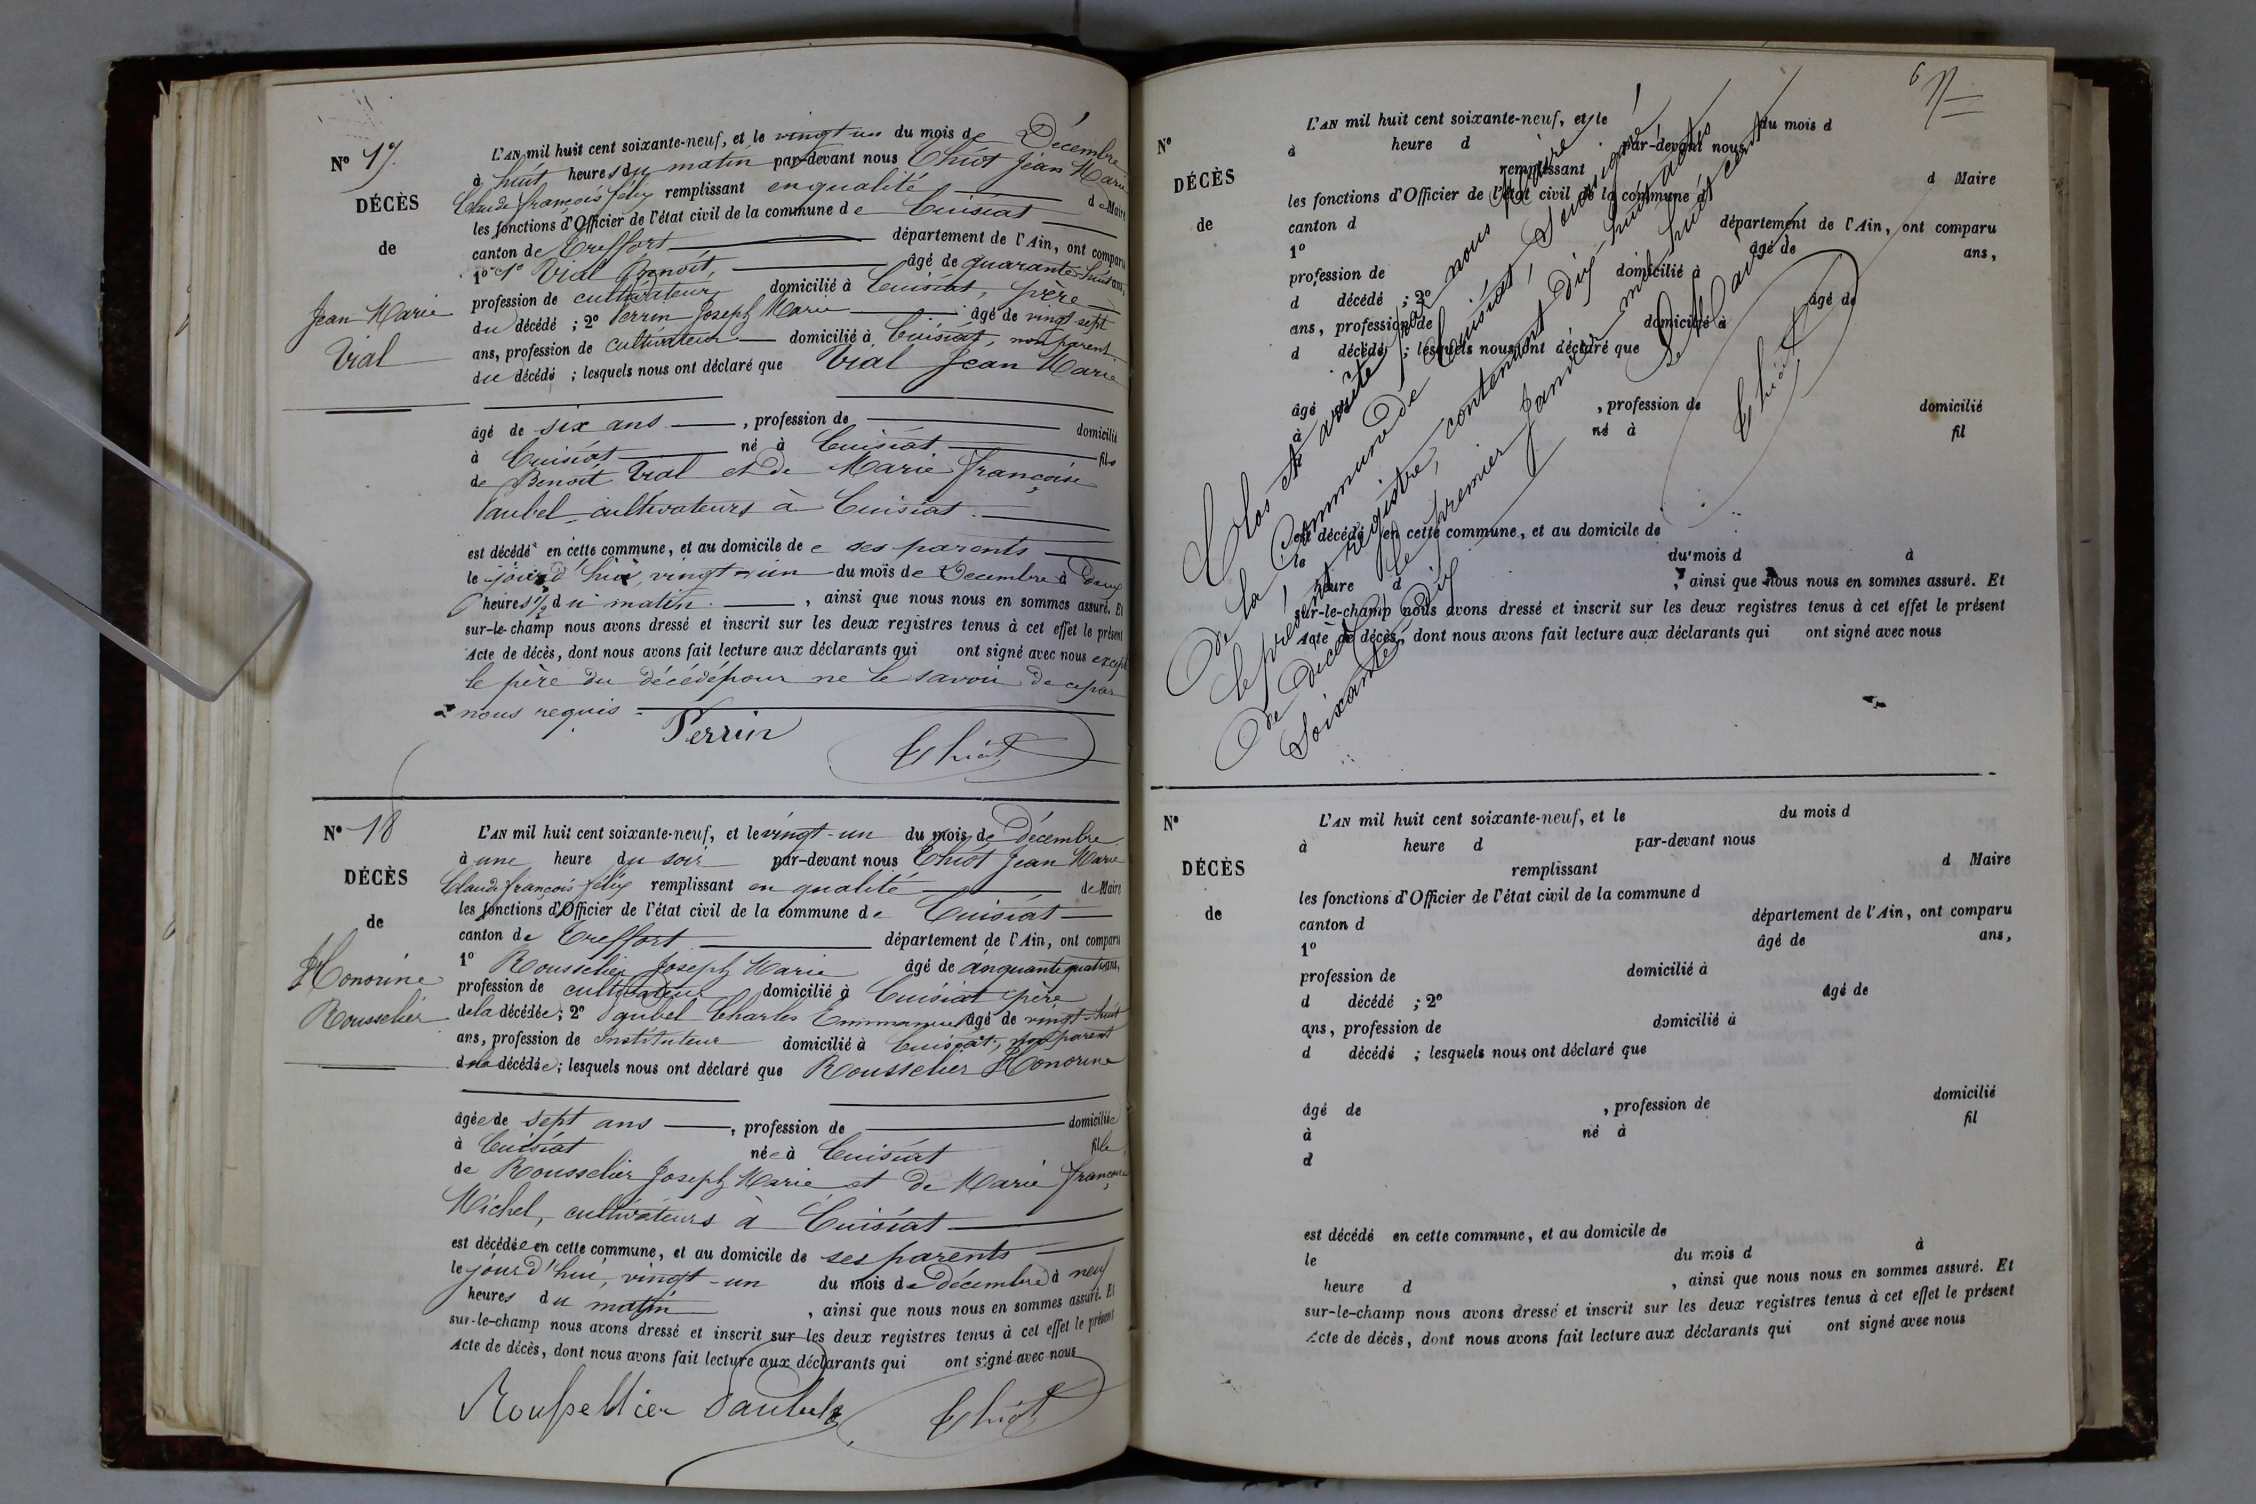 N° 17.
DÉCÈS
de
Jean Marie
Vial
L'AN mil huit cent soixante-neuf, et le vingt un du mois de Décembre
à huit heures du matin par-devant nous Chiot Jean Marie
Claude françois félix remplissant en qualité de Maire
les fonctions d'Officier de l'état civil de la commune de Cuisiat
canton de Treffort département de l'Ain, ont comparu
1° Vial Benoît, âgé de quarante huit ans,
profession de cultivateur domicilié à Cuisiat, père
du décédé ; 2° Perrin Joseph Marie âgé de vingt sept
ans, profession de cultivateur domicilié à Cuisiat, non parent
du décédé ; lesquels nous ont déclaré que Vial Jean Marie
âgé de six ans , profession de domicilié
à Cuisiat né à Cuisiat fils
de Benoît Vial et de Marie françoise
Paubel cultivateurs à Cuisiat.
est décédé en cette commune, et au domicile de ses parents
le jourd'hui, vingt-un du mois de Decembre à Deux
heures ½ du matin. , ainsi que nous nous en sommes assuré. Et
sur-le-champ nous avons dressé et inscrit sur les deux registres tenus à cet effet le présent
Acte de décès, dont nous avons fait lecture aux déclarants qui ont signé avec nous excepté
le père du décédé pour ne le savoir de ce par
nous requis
Perrin
Chiot
N° 18
DÉCÈS
de
Honorine
Rousselier
L'AN mil huit cent soixante-neuf, et le vingt-un du mois de Décembre
à une heure du soir par-devant nous Chiot Jean Marie
Claude françois félix remplissant en qualité de Maire
les fonctions d'Officier de l'état civil de la commune de Cuisiat
canton de Treffort département de l'Ain, ont comparu
1° Rousselier Joseph Marie âgé de cinquante quatre ans,
profession de cultivateur domicilié à Cuisiat père
de la décédée ; 2° Paubel Charles Emmanuel âgé de vingt-huit
ans, profession de Instituteur domicilié à Cuisiat, non parent
de la décédée ; lesquels nous ont déclaré que Rousselier Honorine
âgée de sept ans , profession de domiciliée
à Cuisiat née à Cuisiat fille
de Rousselier Joseph Marie et de Marie françoise
Michel, cultivateurs à Cuisiat
est décédée en cette commune, et au domicile de ses parents
le jourd'hui, vingt-un du mois de décembre à neuf
heures du matin , ainsi que nous nous en sommes assuré. Et
sur-le-champ nous avons dressé et inscrit sur les deux registres tenus à cet effet le présent
Acte de décès, dont nous avons fait lecture aux déclarants qui ont signé avec nous
Rousselier Paubel
Chiot
N°
DÉCÈS
de
L'AN mil huit cent soixante-neuf, et le du mois d
à heure d par-devant nous
remplissant d Maire
les fonctions d'Officier de l'état civil de la commune d
canton d département de l'Ain, ont comparu
1° âgé de ans,
profession de domicilié à
d décédé ; 2° âgé de
ans, profession de domicilié à
d décédé ; lesquels nous ont déclaré que
âgé de , profession de domicilié
à né à fil
est décédé en cette commune, et au domicile de
le du mois d à
heure d , ainsi que nous nous en sommes assuré. Et
sur-le-champ nous avons dressé et inscrit sur les deux registres tenus à cet effet le présent
Acte de décès, dont nous avons fait lecture aux déclarants qui ont signé avec nous
Clos et arrêté par nous Maire
de la Commune de Cuisiat, soussigné
le présent registre, contenant dix huit actes
de décès, le premier Janvier mil huit cent
soixante dix
Le Maire
Chiot
N°
DÉCÈS
de
L'AN mil huit cent soixante-neuf, et le du mois d
à heure d par-devant nous
remplissant d Maire
les fonctions d'Officier de l'état civil de la commune d
canton d département de l'Ain, ont comparu
1° âgé de ans,
profession de domicilié à
d décédé ; 2° âgé de
ans, profession de domicilié à
d décédé ; lesquels nous ont déclaré que
âgé de , profession de domicilié
à né à fil
d
est décédé en cette commune, et au domicile de
le du mois d à
heure d , ainsi que nous nous en sommes assuré. Et
sur-le-champ nous avons dressé et inscrit sur les deux registres tenus à cet effet le présent
Acte de décès, dont nous avons fait lecture aux déclarants qui ont signé avec nous